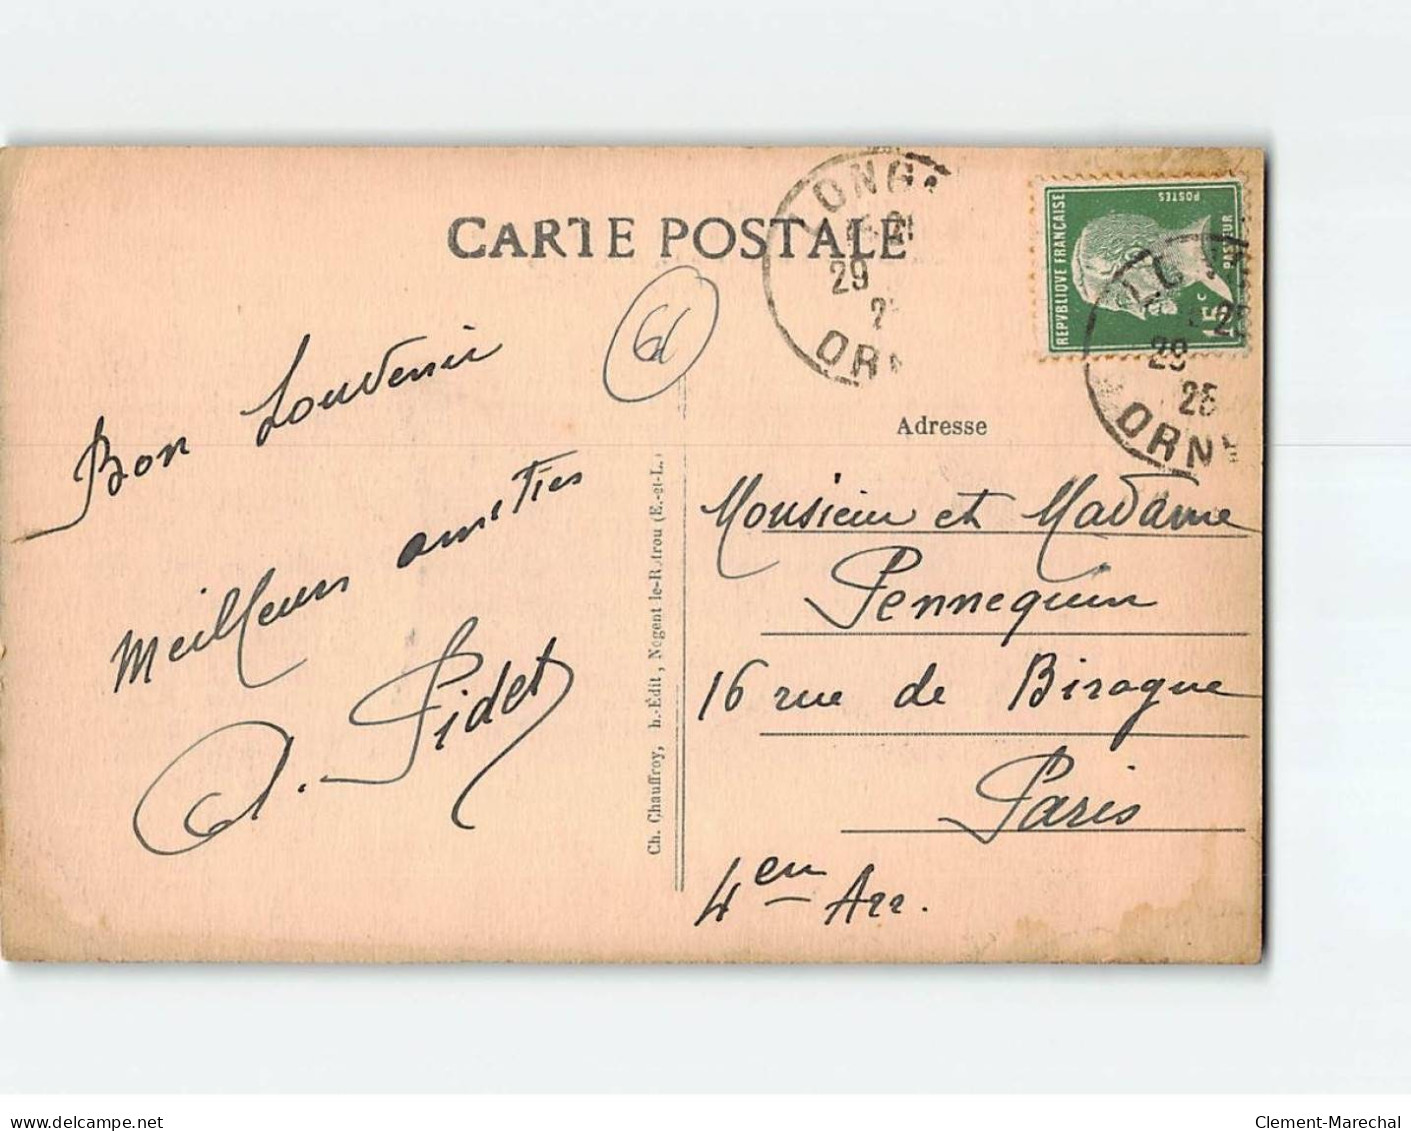 CARTE POSTALE
LONG
15
29
ORN
REPVBLIQVE FRANÇAISE
POSTES
PASTEUR
15c
29
25
ORNE
61
Bon Souvenir
Meilleures amitiés
A. Pidet
Ch. Chauffroy, h.-Édit, Nogent le-Rotrou (E.-et-L.)
Adresse
Monsieur et Madame
Pennequin
16 rue de Birague
Paris
4em Arr.
www.delcampe.net
Clement-Marechal